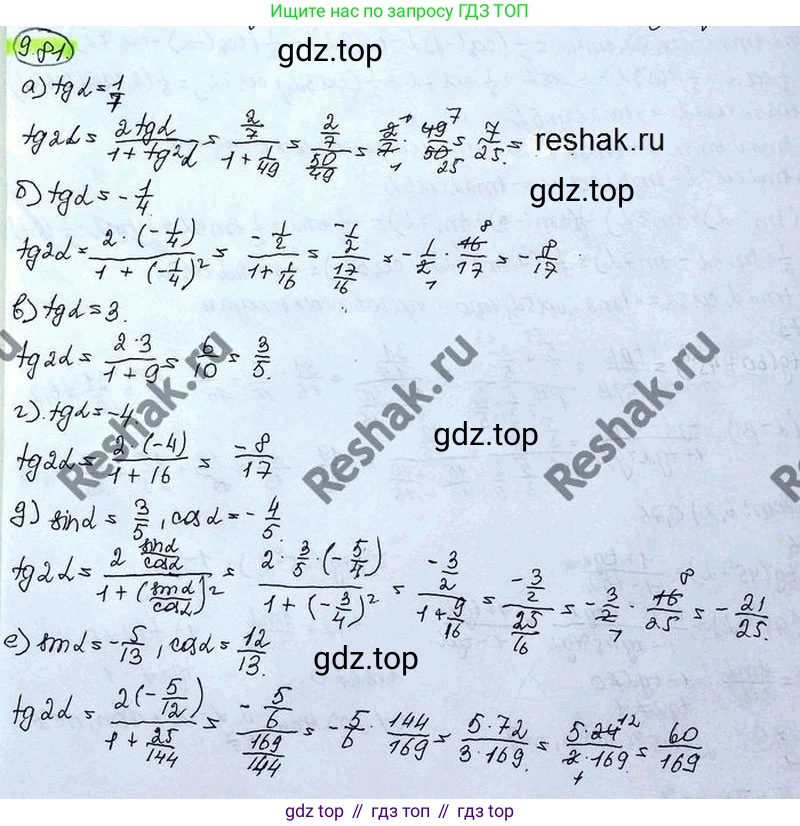 Ищите нас по запросу ГДЗ ТОП
9.81.
gdz.top
а) tgα = 1/7
tg2α = 2tgα/(1 + tg²α) = (2/7)/(1 + 1/49) = (2/7)/(50/49) = 2/7 · 49/50 = 7/25 =
reshak.ru
gdz.top
б) tgα = -1/4.
tg2α = 2·(-1/4)/(1 + (-1/4)²) = (-1/2)/(1 + 1/16) = (-1/2)/(17/16) = -1/2 · 16/17 = -8/17
в) tgα = 3.
tg2α = 2·3/(1 + 9) = 6/10 = 3/5.
Reshak.ru
Reshak.ru
Reshak.ru
г). tgα = -4.
gdz.top
tg2α = 2·(-4)/(1 + 16) = -8/17
д) sinα = 3/5, cosα = -4/5.
tg2α = 2 sinα/cosα/(1 + (sinα/cosα)²) = 2·3/5·(-5/4)/(1 + (-3/4)²) = (-3/2)/(1 + 9/16) = (-3/2)/(25/16) = 3/2 · 16/25 = -21/25.
е) sinα = -5/13, cosα = 12/13.
gdz.top
tg2α = 2(-5/12)/(1 + 25/144) = (-5/6)/(169/144) = -5/6 · 144/169 = 5·72/3·169 = 5·24/2·169 = 60/169
gdz top // гдз топ // gdz.top // гдз.топ